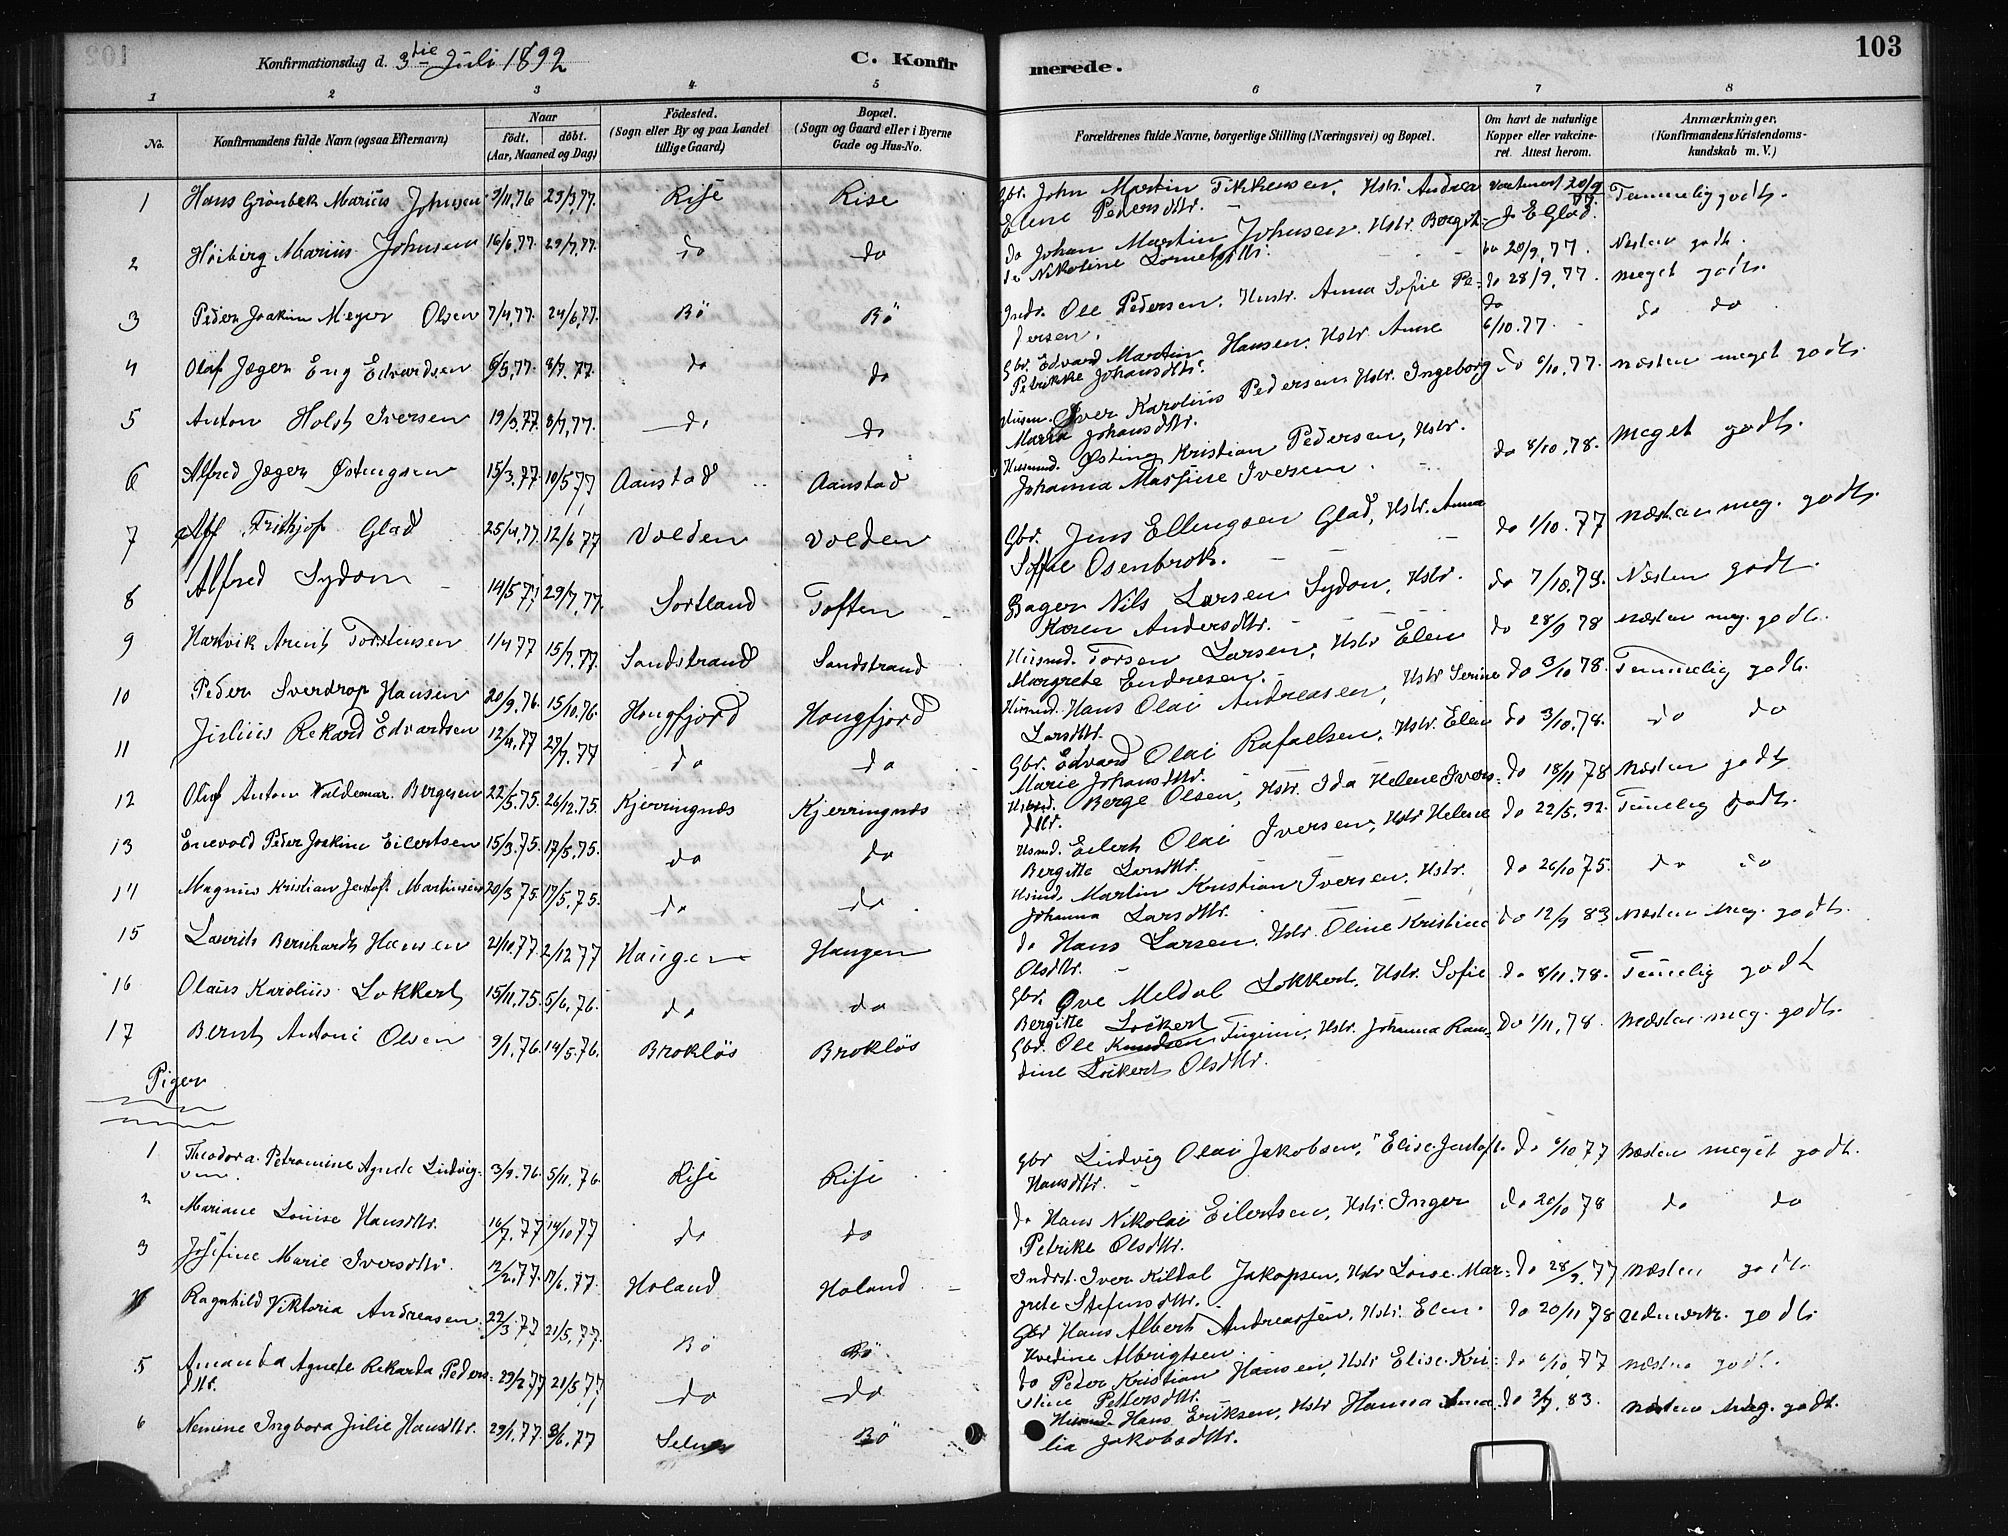 Konfirmationsdag d. 3tie Juli 1892 C. Konfirmerede. 103
1 2 3 4 5 6 7 8
No. Konfirmandens fulde Navn (ogsaa Efternavn) Naar født. døbt. (Aar, Maaned og Dag) Fødested. (Sogn eller By og paa Landet tillige Gaard) Bopæl. (Sogn og Gaard eller i Byerne Gade og Hus-No. Forældrenes fulde Navne, borgerlige Stilling (Næringsvei) og Bopæl. Om havt de naturlige Kopper eller vakcineret. Attest herom. Anmærkninger. (Konfirmandens Kristendomskundskab m. V.)
1 Hans Grönbek Marius Johnsen 3/11,76 29/3,77. Rise Rise Gbr. John Martin Hstr. Andrea 20/9 77 Temmelig godt.
Elene Pedersdttr. J E Glad.
2 Höiberg Marius Johnsen 16/6,77. 29/7,77. do do do Johan Martin Johnsen. Hstr. Bergit- do 20/9,77. Næsten godt.
te Nikoline
3 Peder Joakim Meyer Olsen 7/4,77. 24/6,77. Bö Bö Inds. Ole Pedersen. Hustr. Anna Sofie Pe- do 28/9,77. meget godt.
dersen.
4 Olaf Jæger Eng Edvardsen 6/5,77. 8/7.77. do do Gbr. Edvard Martin Hansen. Hstr. Anne do 6/10.77. do do
Petrikke Johansdttr.
5 Anton Holst Iversen 19/3,77. 8/7,77. do do Husm. Iver Karolius Pedersen Hstr. Ingeborg do 6/10.77. næsten meget godt.
Maria Johansdttr.
6 Alfred Jæger Östengsen 15/3.77. 10/5,77 Aanstad Aanstad Husmd. Østing Kristian Pedersen, Hstr. do 8/10.78. Meget godt.
Johanna Massine Iversen.
7 Alf Fritkjof Glad 25/4,77. 12/6 77 Volden Volden Gbr. Jens Ellingsen Glad, Hstr. Anna do 1/10.77 næsten meg. godt.
Soffie Osenbrok.
8 Alfred Sydom 14/5 77 29/7,77. Sortland Toften Bager Nils Larsen Sydon, Hstr. do 7/10,78. Næsten godt.
Karen Andersdttr.
9 Hartvik Arent Torstensen 1/4 77 15/7,77. Sandstrand Sandstrand Husmd. Torsen Larsen, Hstr Elen do 28/9 78 næsten meg. godt.
Margrete Endresen.
10 Peder Sverdrop Hansen 20/9.76. 15/10.76. Hougfjord Hougfjord Husmd. Hans Olai Andreasen, Hstr Serine do 3/10 78. Temmelig godt.
Larsdttr.
11 Julius Rekard Edvardsen 12/4.77 29/7.77 do do Gbr. Edvard Olai Rafaelsen, Hstr. Elen do 3/10.78. do do
Marie Johansdttr.
12 Oluf Anton Valdemar Bergesen 22/5.75. 26/12.75. Kjerringnæs Kjerringnæs Husmd. Berge Olsen, Hstr. Ida Helene Ivers- do 18/11 78 Næsten godt
dttr.
13 Enevold Peder Joakim Eilertsen 15/3.75. 17/5.75. do do Husmd. Eilert Olai Iversen, Hstr Helene do 22/5.92. Temelig godt.
Bergitte Larsdttr.
14 Magnus Kristian Jentoft Martinusen 20/3,75. 17/5.75. do do Husmd. Martin Kristian Iversen, Hstr. do 26/10 75. do do
Johanna Larsdttr.
15 Laurits Bernhardt Hansen 21/10.77. 2/12 77 Haugen Haugen do Hans Larsen. Hstr. Oline Kristine do 12/9 83 Næsten meg. godt.
Olsdttr.
16 Olaus Karolius Lokkert 15/11,75. 5/6.76. do do Gbr. Ove Meldal Lokkert, Hstr. Sofie do 8/11.78. Temelig godt
Bergitte Lockert
17 Bernt Antoni Olsen 9/1.76. 14/5.76. Broklös Broklös Gbr. Ole Knudsen Hstr. Johanna Ran- do 1/11.78. Næsten meg. godt.
dine Lockert Olsdttr.
Piger
1 Theodora Petromine Agnete Ludvig- 3/9.76. 5/11.76. Rise Rise Gbr Ludvig Olai Jakobsen, " Elise Jentoft do 6/10 77 Næsten meget godt.
sen. Hansdttr.
2 Mariane Louise Hansdttr. 16/7.77 14/10 77 do do do Hans Nikolai Eilertsen, Hstr. Inger do 20/10 78 do do
Petrike Olsdttr.
3 Josefine Marie Iversdttr. 12/2.77. 17/6.77. Holand Holand Indrst. Iver Kildal Jakopsen, Hstr Loise Mar- do 28/9.77 Næsten godt.
grete Stefensdttr.
4 Ragnhild Viktoria Andreasen 22/3 77 21/5.77. Bö Bö Gbr Hans Albert Andreassen, Hstr. Elen do 20/11 78 udmærk. godt.
Hvedine Albrigtsen.
5 Amanda Agnete Rekarda Peders- 29/2 77 21/5,77 do do do Peder Kristian Hansen, Hstr Elise Kri- do 6/10,77 næsten godt.
dttr. stine Pettersdttr.
6 Nemine Ingbora Julie Hansdttr. 29/1.77. 3/6.77 Selnes Bö Husmd. Hans Eriksen, Hstr Hanna Ama- do 3/9.83. næsten meg. godt.
lia Jakobsdttr.